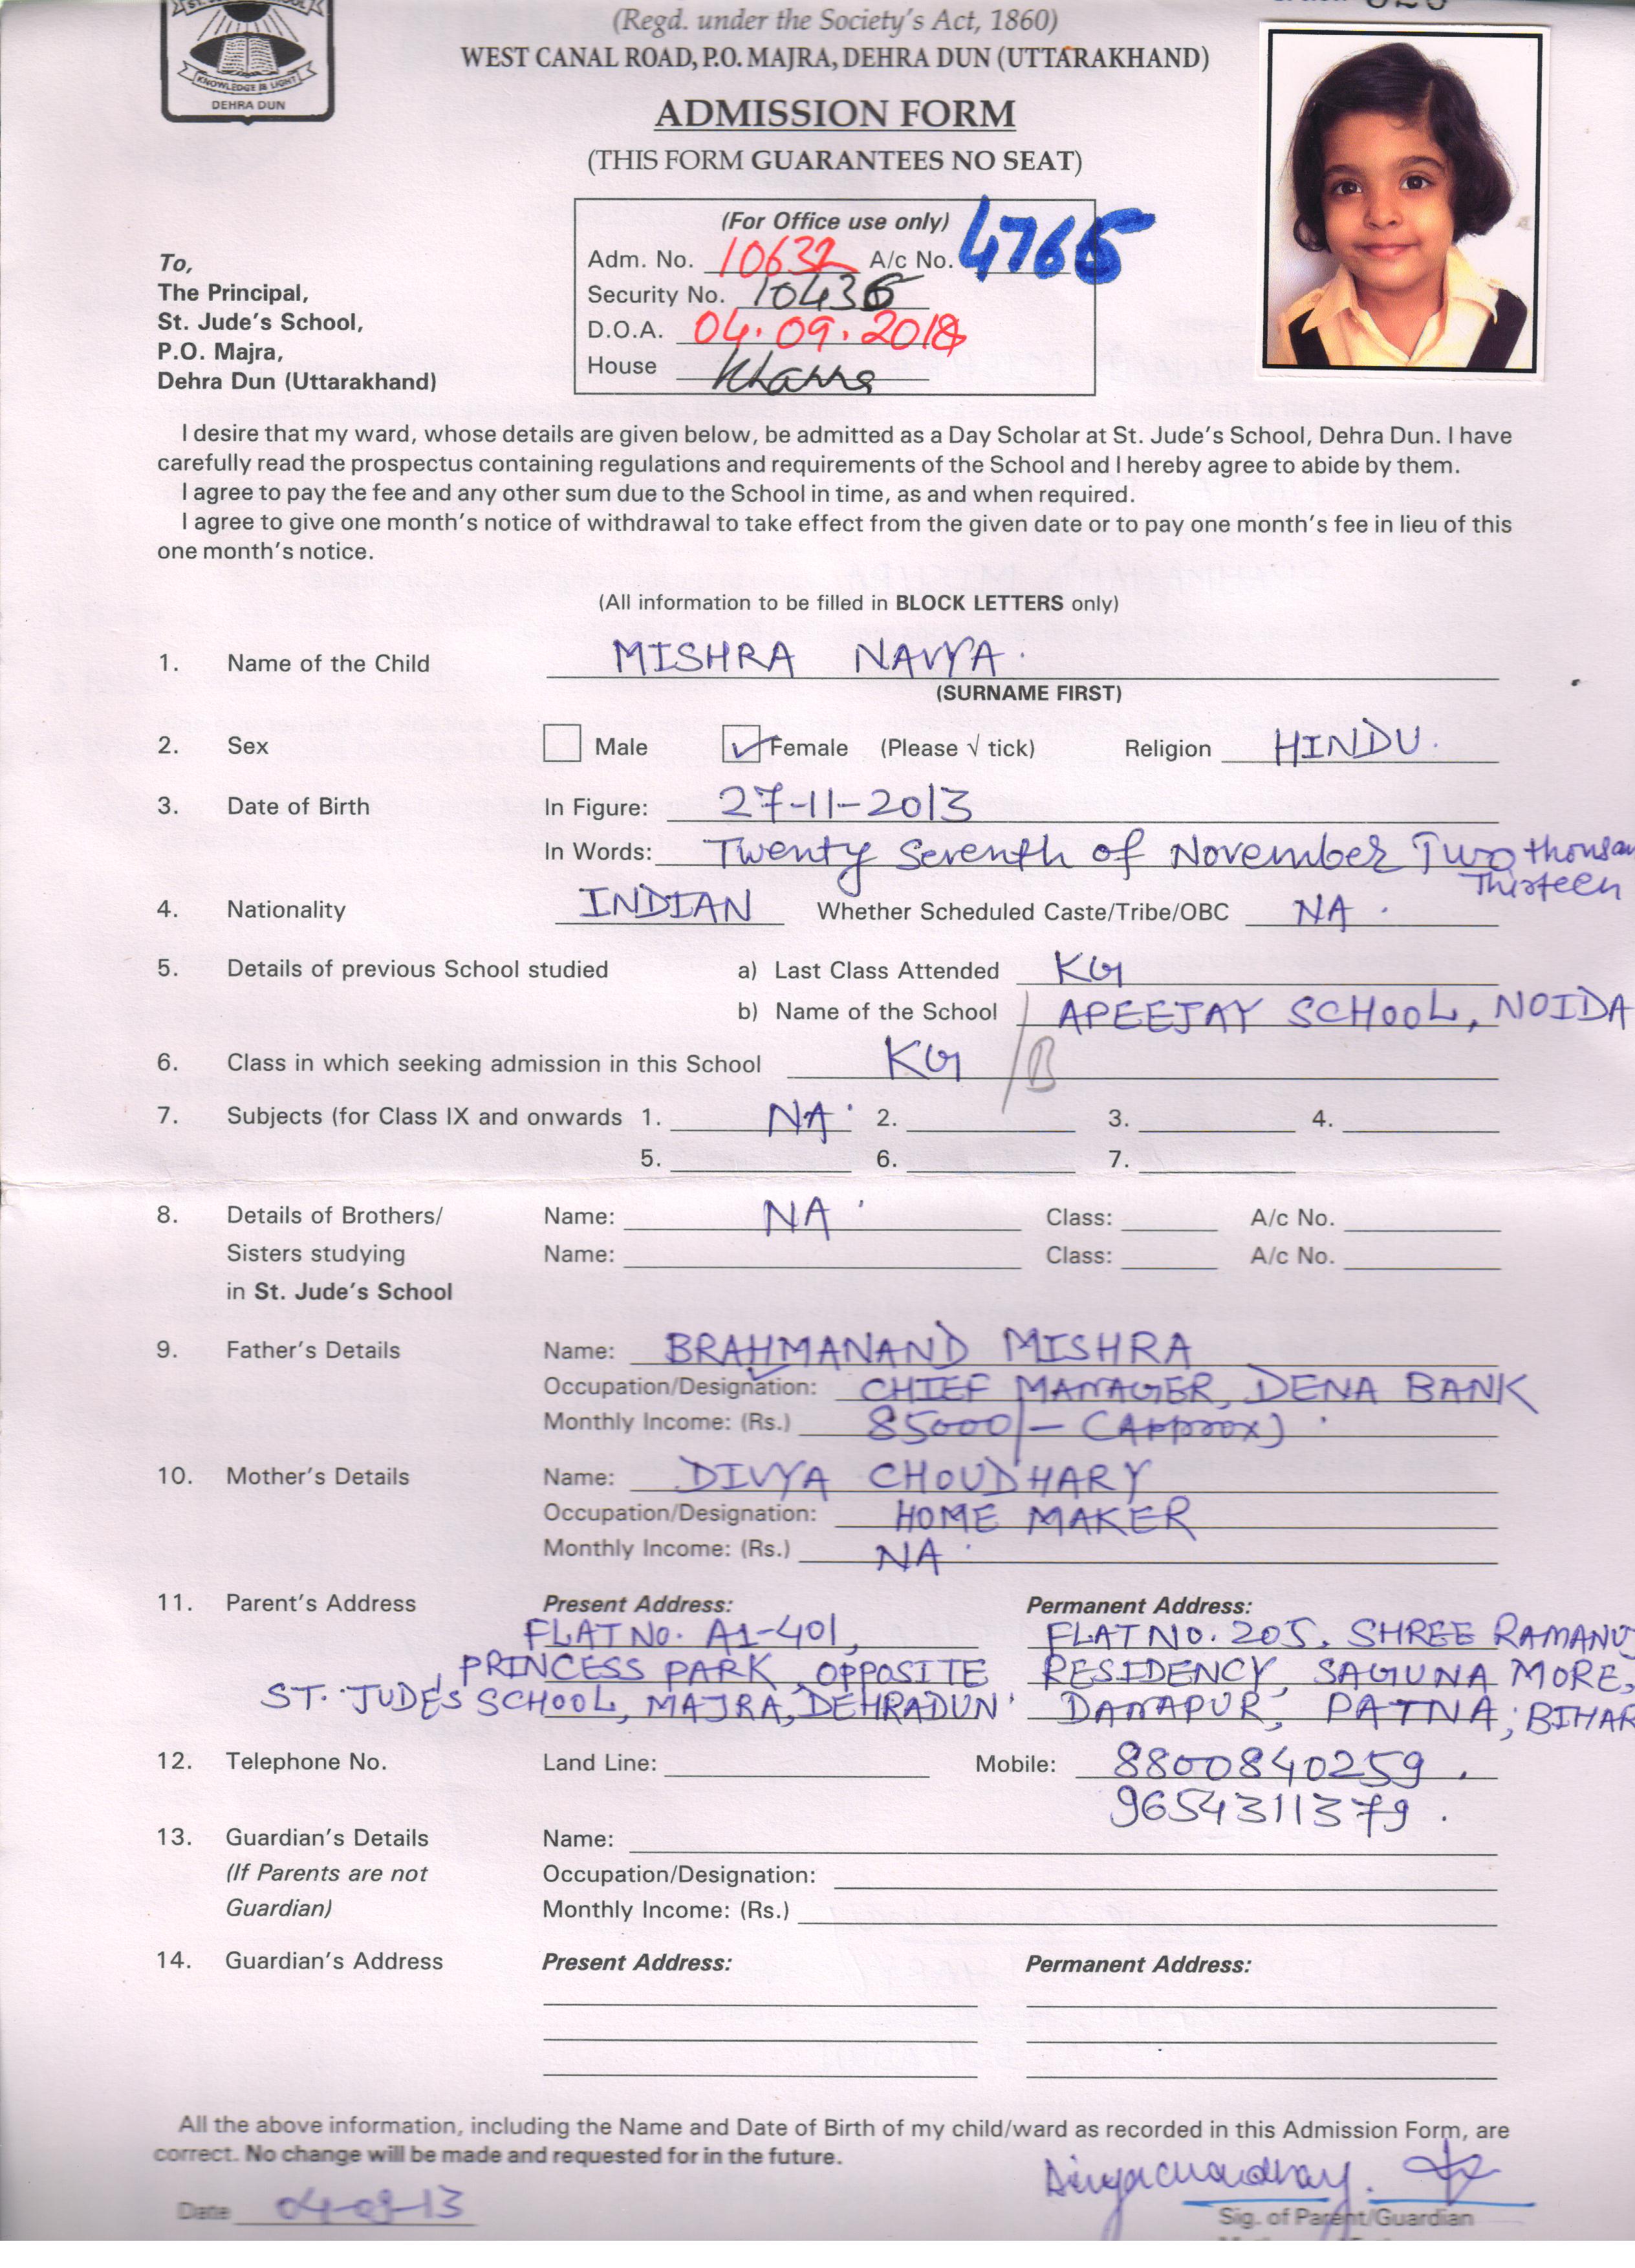 DEHRA DUN
KNOWLEDGE IS LIGHT
(Regd. under the Society's Act, 1860)
WEST CANAL ROAD, P.O. MAJRA, DEHRA DUN (UTTARAKHAND)
ADMISSION FORM
(THIS FORM GUARANTEES NO SEAT)
(For Office use only)
Adm. No. 10632 A/c No. 4765
Security No. 10436
D.O.A. 04.09.2018
House Khanna
To,
The Principal,
St. Jude's School,
P.O. Majra,
Dehra Dun (Uttarakhand)
I desire that my ward, whose details are given below, be admitted as a Day Scholar at St. Jude's School, Dehra Dun. I have
carefully read the prospectus containing regulations and requirements of the School and I hereby agree to abide by them.
I agree to pay the fee and any other sum due to the School in time, as and when required.
I agree to give one month's notice of withdrawal to take effect from the given date or to pay one month's fee in lieu of this
one month's notice.
(All information to be filled in BLOCK LETTERS only)
1. Name of the Child MISHRA NAVYA.
(SURNAME FIRST)
2. Sex Male Female (Please √ tick) Religion HINDU.
3. Date of Birth In Figure: 27-11-2013
In Words: Twenty Seventh of November Two thousan
Thirteen
4. Nationality INDIAN Whether Scheduled Caste/Tribe/OBC NA.
5. Details of previous School studied a) Last Class Attended KG
b) Name of the School APEEJAY SCHOOL, NOIDA
6. Class in which seeking admission in this School KG /B
7. Subjects (for Class IX and onwards 1. NA 2. 3. 4.
5. 6. 7.
8. Details of Brothers/ Name: NA Class: A/c No.
Sisters studying Name: Class: A/c No.
in St. Jude's School
9. Father's Details Name: BRAHMANAND MISHRA
Occupation/Designation: CHIEF MANAGER, DENA BANK
Monthly Income: (Rs.) 85000/- (Approx)
10. Mother's Details Name: DIVYA CHOUDHARY
Occupation/Designation: HOME MAKER
Monthly Income: (Rs.) NA
11. Parent's Address Present Address: Permanent Address:
FLAT NO. A1-401, FLAT NO. 205, SHREE RAMANUJ
PRINCESS PARK, OPPOSITE RESIDENCY, SAGUNA MORE,
ST. JUDE'S SCHOOL, MAJRA, DEHRADUN DANAPUR, PATNA, BIHAR
12. Telephone No. Land Line: Mobile: 8800840259.
9654311379.
13. Guardian's Details Name:
(If Parents are not Occupation/Designation:
Guardian) Monthly Income: (Rs.)
14. Guardian's Address Present Address: Permanent Address:
All the above information, including the Name and Date of Birth of my child/ward as recorded in this Admission Form, are
correct. No change will be made and requested for in the future.
Divya Choudhary.
Date 04-09-13
Sig. of Parent/Guardian